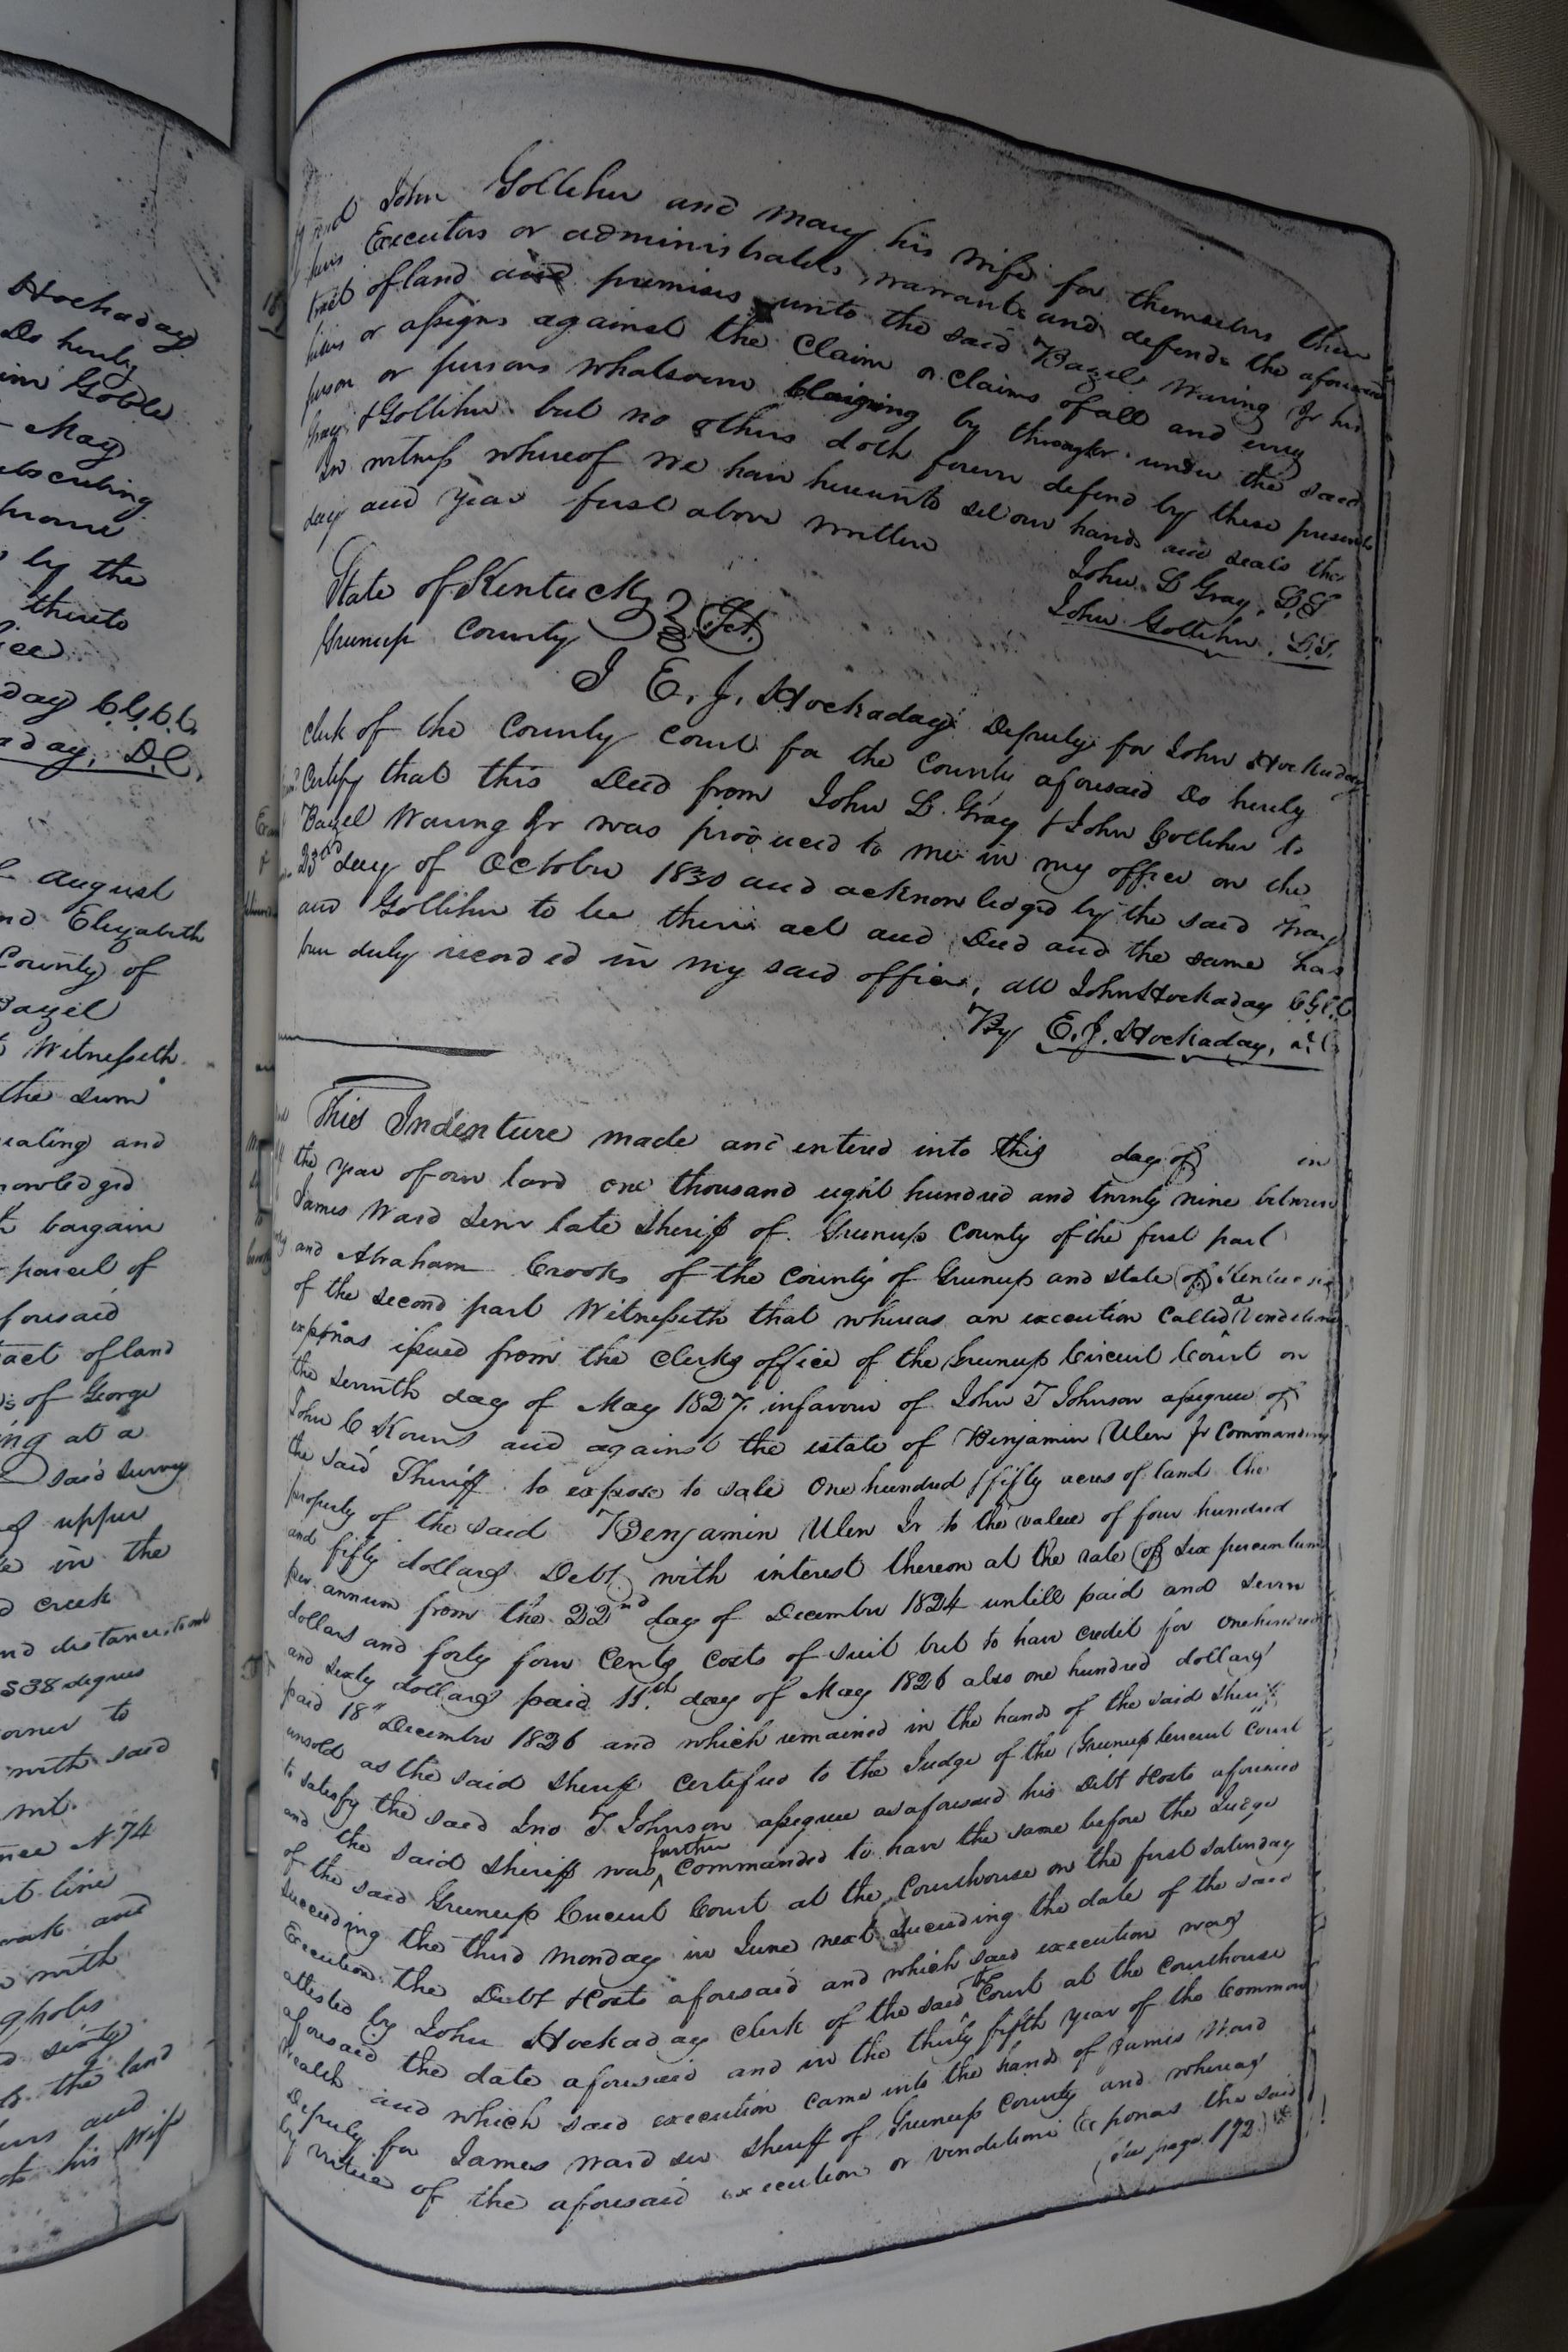 Hockaday
Do hereby
Goble
May
subscribing
by the
thereto
day C.G.C.C.
aday, D.C.
August
and Elizabeth
County of
Bazil
Witnesseth
the sum
and
knowledged
bargain
parcel of
foresaid
tract of land
of George
ing at a
said survey
upper
in the
creek
and distances to wit
S 38 degrees
corner to
with said
nce N 74
line
oak and
with
sixty
the land
and
his Wife
John Gollihu and Mary his wife for themselves their
heirs Executors or administrators, warrants and defends the aforesaid
tract of land and premises unto the said Bazil Waring Jr his
heirs or assigns against the claim or claims of all and every
person or persons whatsoever claiming by through or under the said
Gray & Gollihu but no others doth forever defend by these presents
In witness whereof we have hereunto set our hands and seals the
day and year first above written
John L Gray, L.S
John Gollihu, L.S.
State of Kentucky
Greenup County Sct.
I E. J. Hockaday Deputy for John Hockaday
Clerk of the County Court for the County aforesaid Do hereby
Certify that this Deed from John L. Gray & John Gollihu to
Bazel Waring Jr was produced to me in my office on the
23rd day of October 1830 and acknowledged by the said Gray
and Gollihu to be their act and Deed and the same has
been duly recorded in my said office, att John Hockaday C.G.C.C
By E. J. Hockaday, D.C
This Indenture made and entered into this day of in
the year of our lord one thousand eight hundred and twenty nine between
James Ward Senr late Sheriff of Greenup County of the first part
and Abraham Crooks of the County of Greenup and state of Kentucky
of the second part Witnesseth that whereas an execution called a Venditioni
exponas issued from the clerks office of the Greenup Circuit Court on
the seventh day of May 1827. in favour of John T Johnson assignee of
John C Kouns and against the estate of Benjamin Ulen Jr Commanding
the said Sheriff to expose to sale One hundred & fifty acres of land the
property of the said Benjamin Ulen Jr to the value of four hundred
and fifty dollars Debt, with interest thereon at the rate of six percentum
per annum from the 22nd day of December 1824 untill paid and seven
dollars and forty four Cents costs of suit but to have credit for one hundred
and sixty dollars paid 11.th day of May 1826 also one hundred dollars
paid 18" December 1826 and which remained in the hands of the said Sheriff
unsold as the said Sheriff certified to the Judge of the Greenup Circuit Court
to satisfy the said Jno T Johnson assignee as aforesaid his Debt & Costs aforesaid
and the said Sheriff was further commanded to have the same before the Judge
of the said Greenup Circuit Court at the Courthouse on the first saturday
succeeding the third monday in June next succeeding the date of the said
Execution the Debt & Costs aforesaid and which said execution was
attested by John Hockaday clerk of the said the Court at the Courthouse
aforesaid the date aforesaid and in the thirty fifth year of the Common
wealth and which said execution came into the hands of James Ward
Deputy for James Ward sen Sheriff of Greenup County and whereas
by virtue of the aforesaid execution or venditioni Exponas the said
(See page 192)